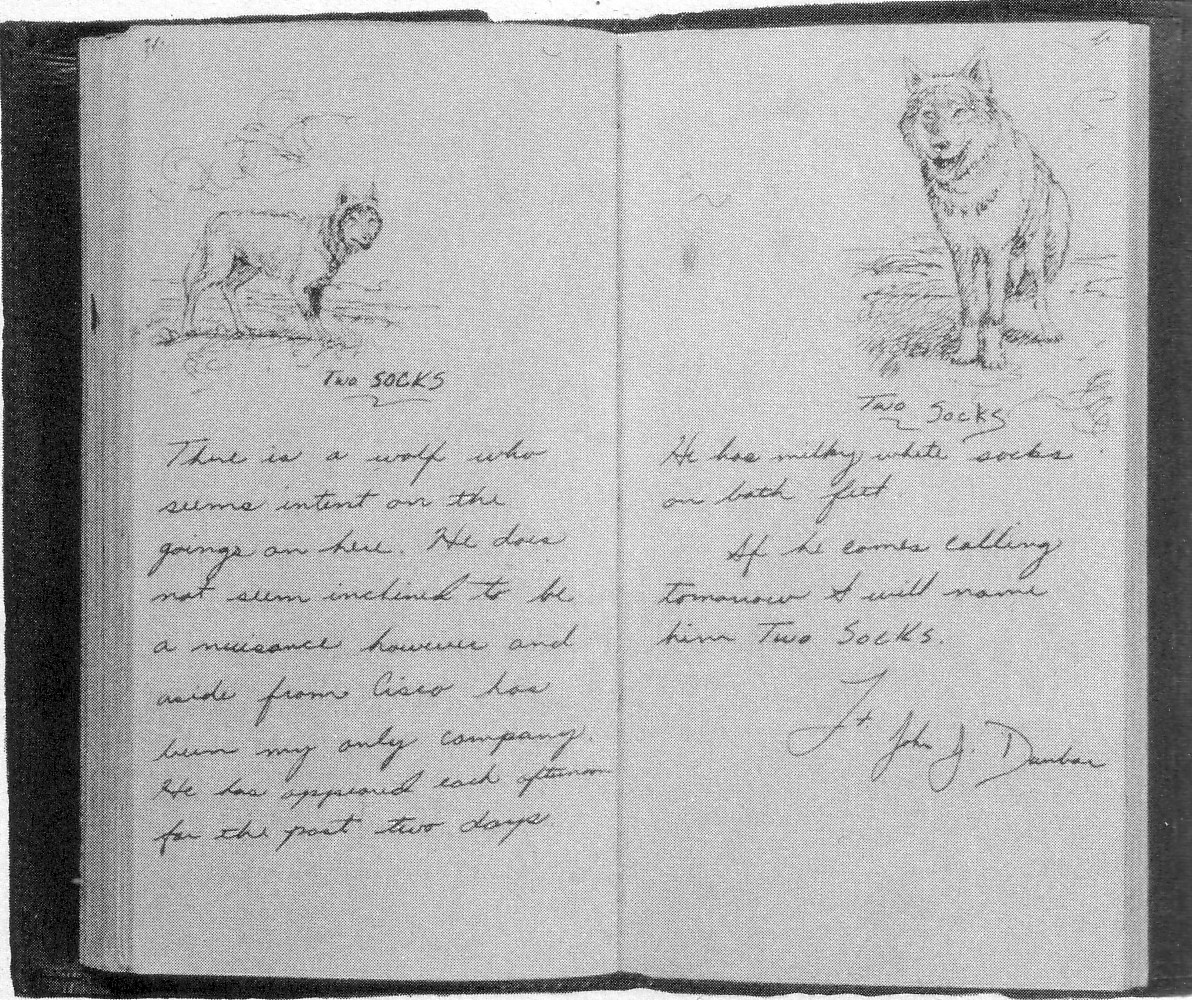 Two SOCKS
There is a wolf who
seems intent on the
goings on here. He does
not seem inclined to be
a nuisance however and
aside from Cisco has
been my only company.
He has appeared each afternoon
for the past two days.
Two Socks
He has milky white socks
on both feet
If he comes calling
tomorrow I will name
him Two Socks.
Lt John J Dunbar